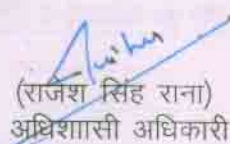 (राजेश सिंह राना)
अधिशाासी अधिकारी